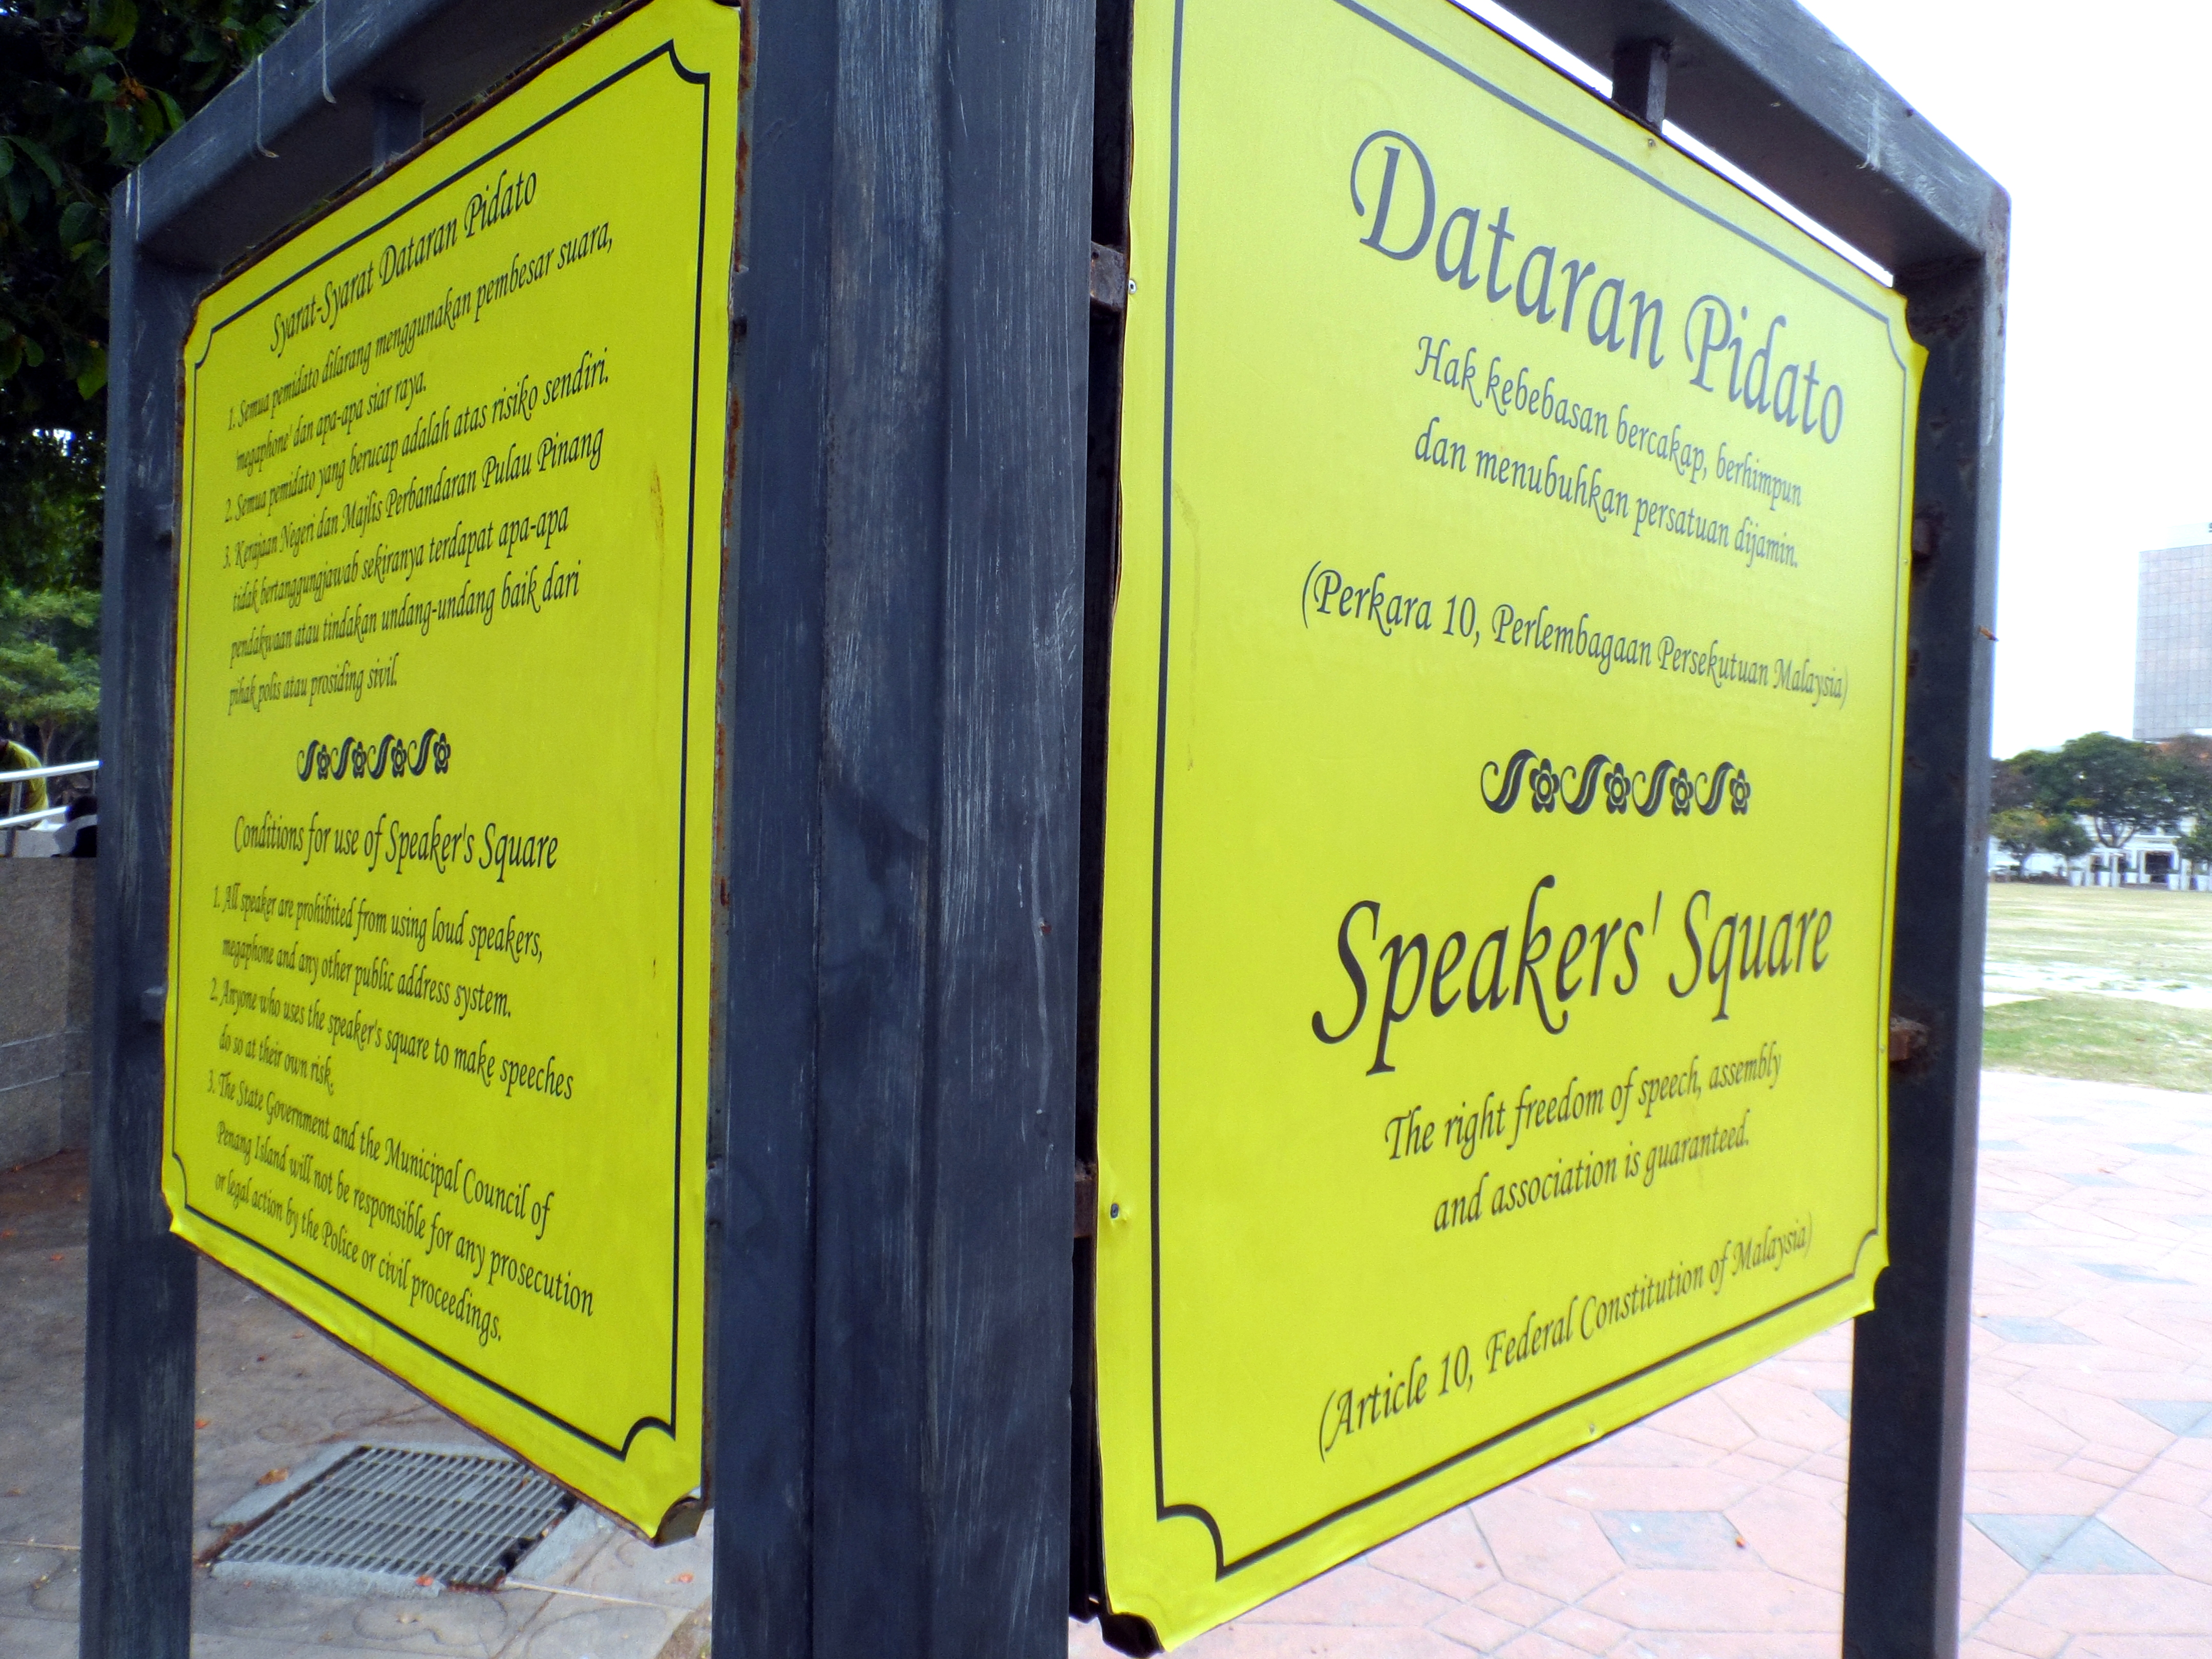 Syarat-Syarat Dataran Pidato
1. Semua pemidato dilarang menggunakan pembesar suara,
'megaphone' dan apa-apa siar raya.
2. Semua pemidato yang berucap adalah atas risiko sendiri.
3. Kerajaan Negeri dan Majlis Perbandaran Pulau Pinang
tidak bertanggungjawab sekiranya terdapat apa-apa
pendakwaan atau tindakan undang-undang baik dari
pihak polis atau prosiding sivil.
Conditions for use of Speaker's Square
1. All speaker are prohibited from using loud speakers,
megaphone and any other public address system.
2. Anyone who uses the speaker's square to make speeches
do so at their own risk.
3. The State Government and the Municipal Council of
Penang Island will not be responsible for any prosecution
or legal action by the Police or civil proceedings.
Dataran Pidato
Hak kebebasan bercakap, berhimpun
dan menubuhkan persatuan dijamin.
(Perkara 10, Perlembagaan Persekutuan Malaysia)
Speakers' Square
The right freedom of speech, assembly
and association is guaranteed.
(Article 10, Federal Constitution of Malaysia)